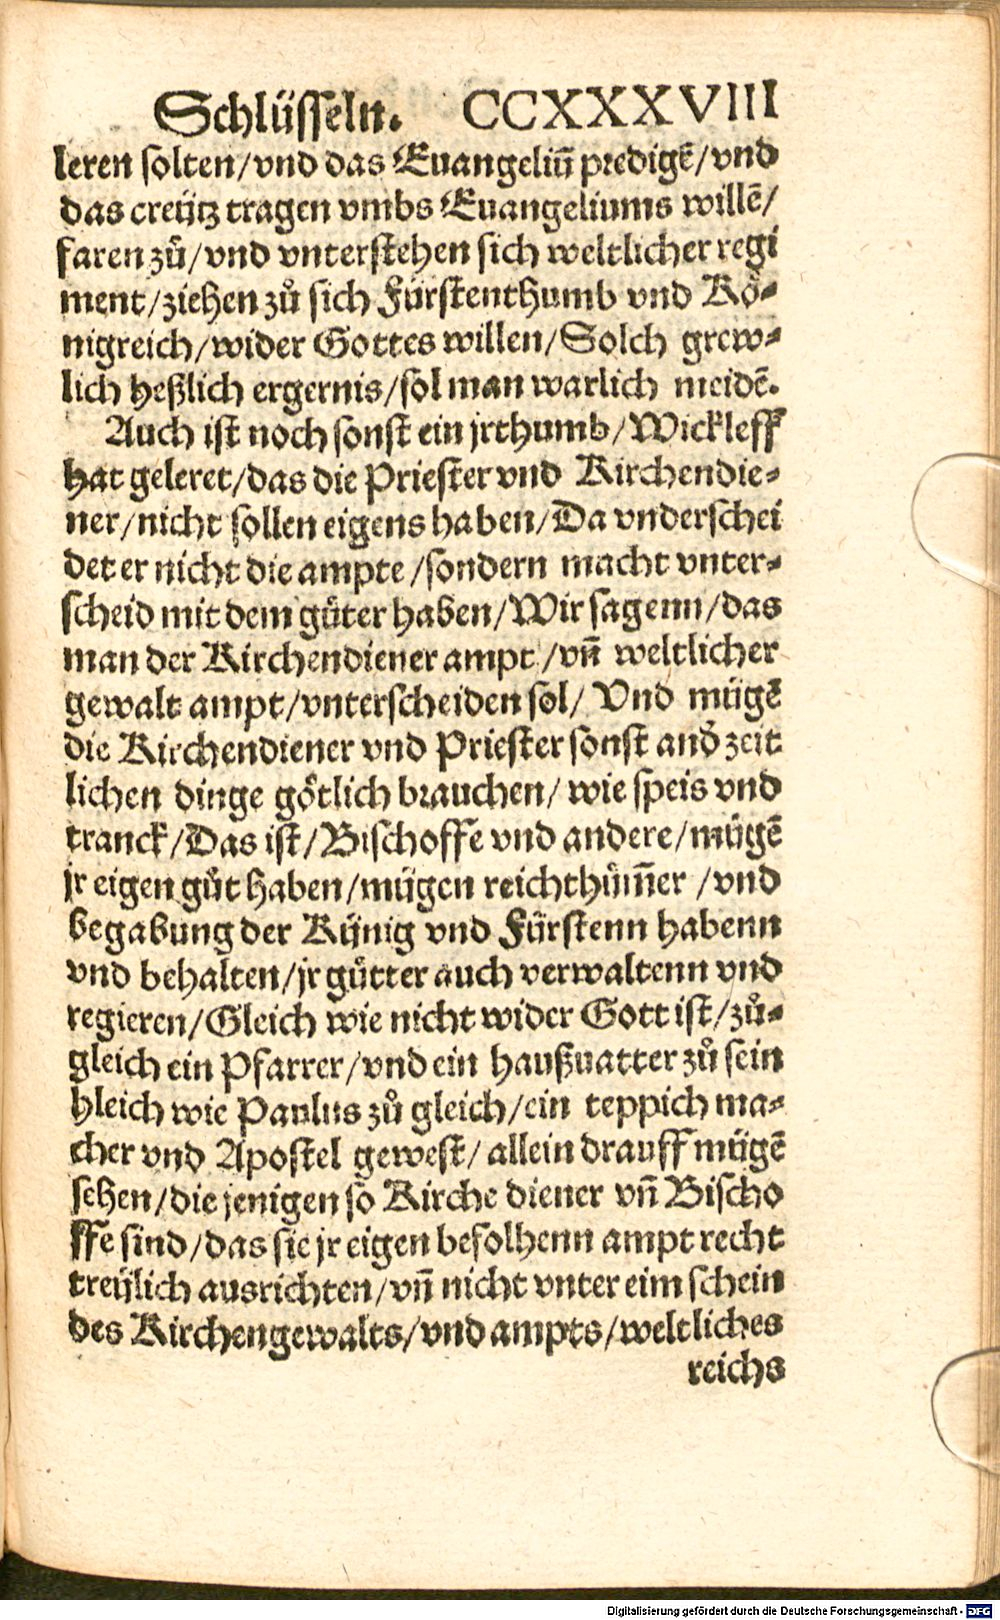 Schlüsseln. CCXXXVIII
leren solten/vnd das Euangeliū predigē/vnd
das creütz tragen vmbs Euangeliums willē/
faren zů/vnd vnterstehen sich weltlicher regi
ment/ziehen zů sich Fürstenthumb vnd Kö-
nigreich/wider Gottes willen/Solch grew-
lich heßlich ergernis/sol man warlich meidē.
Auch ist noch sonst ein jrthumb/Wickleff
hat geleret/das die Priester vnd Kirchendie-
ner/nicht sollen eigens haben/Da vnderschei
det er nicht die ampte/sondern macht vnter-
scheid mit dem güter haben/Wir sagenn/das
man der Kirchendiener ampt/vn̄ weltlicher
gewalt ampt/vnterscheiden sol/ Vnd mügē
die Kirchendiener vnd Priester sonst and̕ zeit
lichen dinge götlich brauchen/ wie speis vnd
tranck/Das ist/Bischoffe vnd andere/mügē
jr eigen gůt haben/mügen reichthüm̄er /vnd
begabung der Künig vnd Fürstenn habenn
vnd behalten/jr gütter auch verwaltenn vnd
regieren/Gleich wie nicht wider Gott ist/zů-
gleich ein Pfarrer/vnd ein haußuatter zů sein
hleich wie Paulus zů gleich/ein teppich ma-
cher vnd Apostel gewest/ allein drauff mügē
sehen/die jenigen so Kirche diener vn̄ Bischo
ffe sind/das sie jr eigen befolhenn ampt recht
treülich ausrichten/vn̄ nicht vnter eim schein
des Kirchengewalts/vnd ampts/weltliches
reichs
Digitalisierung gefördert durch die Deutsche Forschungsgemeinschaft - DFG